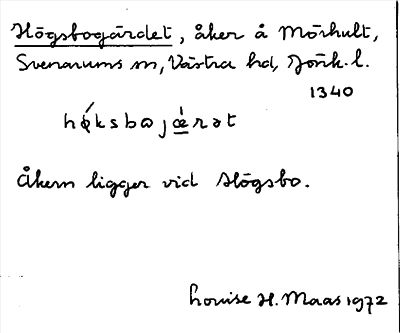 Högsbogärdet, åker å Mörhult,
Svenarums sn, Västra hd, Jönk. l.
1340
hǿksbɷjæ̀rət
Åkern ligger vid Högsbo.
Louise H. Maas 1972